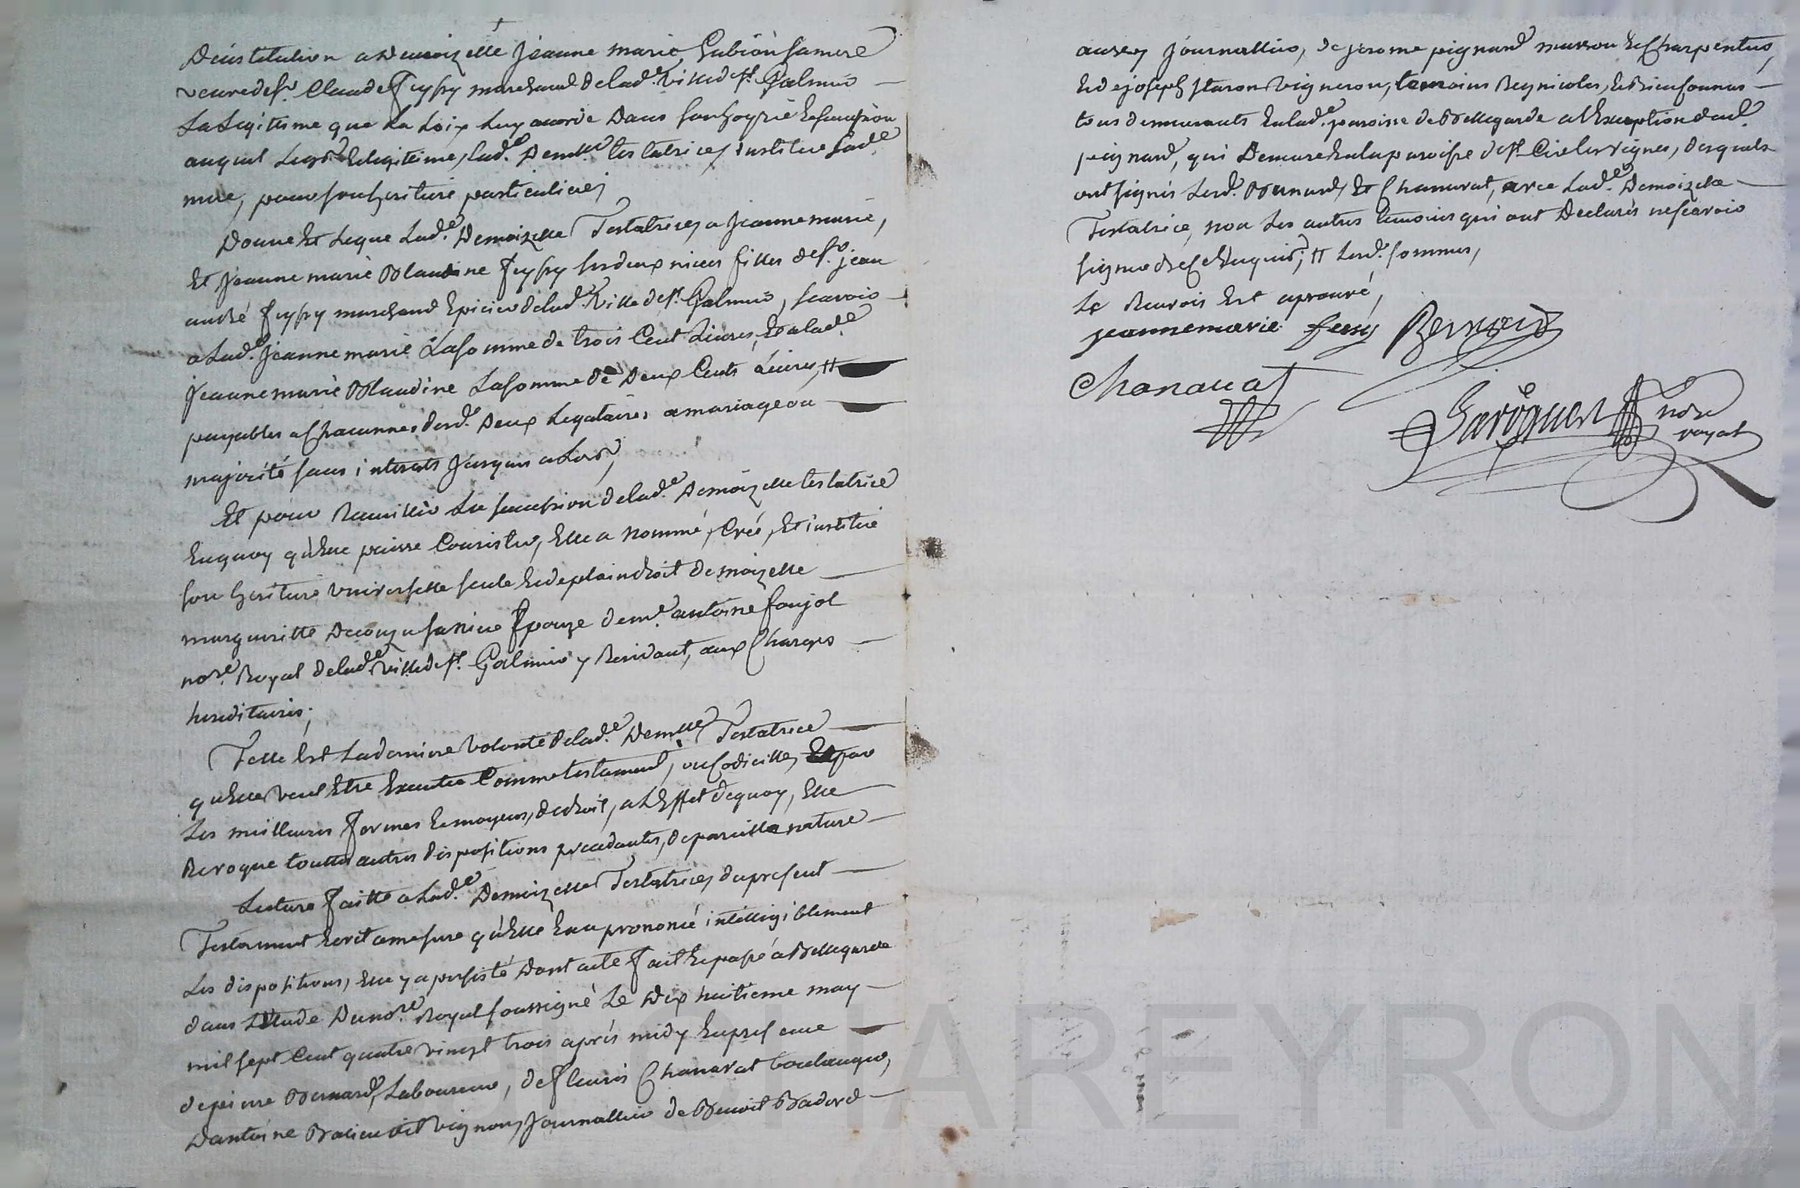 D'institution a Demoizelle Jeanne marie Gubion sa mere
veuve de sr. Claude feyssy marchand de lad.e ville de st. Galmier
La Legitime que La Loix Luy acorde Dans son hoyrie et succession
auquel Legs et legitime, Lad.e Dem.lle testatrice, institue sad.e
mere, pour son heritiere particuliere;
Donne et Legue Lad.e Demoizelle Testatrice, a Jeanne marie,
Et Jeanne marie Blandine feyssy ses deux nieces filles de sr. jean
andré feyssy marchand Epicier de lad.e ville de st. Galmier, scavoir
a Lad.e Jeanne marie La somme de trois Cent Livres, Et a lad.e
Jeanne marie Blandine La somme de Deux Cents Livres, #
payables a Chacunne, desd. Deux Legataires a mariage ou
majorité sans interets Jusques a Lors,
Et pour Laussion de lad.e Demoizelle testatrice
En quoy qu'elle puisse Consister, Elle a nommé, Créé, Et institué
son heritiere universelle seule et de plain droit demoizelle
margueritte Decouzu sa niece Epouze de m.e antoine foujol
no.re Royal de lad.e ville de st. Galmier y Residant, aux Charges
hereditaires;
Telle est La derniere volonté de lad.e Dem.lle Testatrice
qu'elle veut Etre Executée Comme testament, ou Codicille, Et par
Les meilleures formes et moyens, de droit, a L'Effet de quoy, Elle
Revoque touttes autres dispositions precedantes, de pareille nature
Lecture faitte a Lad.e Demoizelle Testatrice, du present
Testament Ecrit a mesure qu'Elle En a prononcé intelligiblement
Les dispositions, Elle y a persisté Dont acte fait Et passé a Bellegarde
dans L'Etude Du no.re Royal soussigné Le Dix huitieme may
mil sept Cent quatre vingt trois après midy En presence
de pierre Bernard, Laboureur, de fleuris Chanavat boulanger,
D'antoine Valieu dit vignon, Journallier de Benoit Badord
aussy Journallier, de jerome pignard masson et Charpentier,
Et de joseph staron vigneron, temoins Reynicoles, Et Bien connus
tous demeurants En lad.e paroisse de Bellegarde a l'Exception dud.
pignard, qui Demeure En la paroisse de st. Cir les vignes, desquels
ont signés Lesd. Bernard, Et Chanavat, avec Lad.e Demoizelle
Testatrice, non Les autres temoins qui ont Declarés ne scavoir
signer de ce Enquis; # Lesd. sommes,
Le Renvois Est aprouvé,
jeanne marie fessy Bernard
Chanavat
no.re
royal